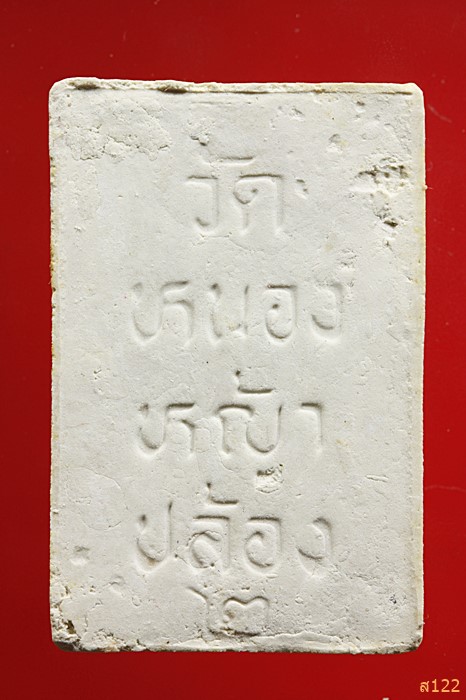 วัด
หนอง
หญ้า
ปล้อง
๒๓
ส122